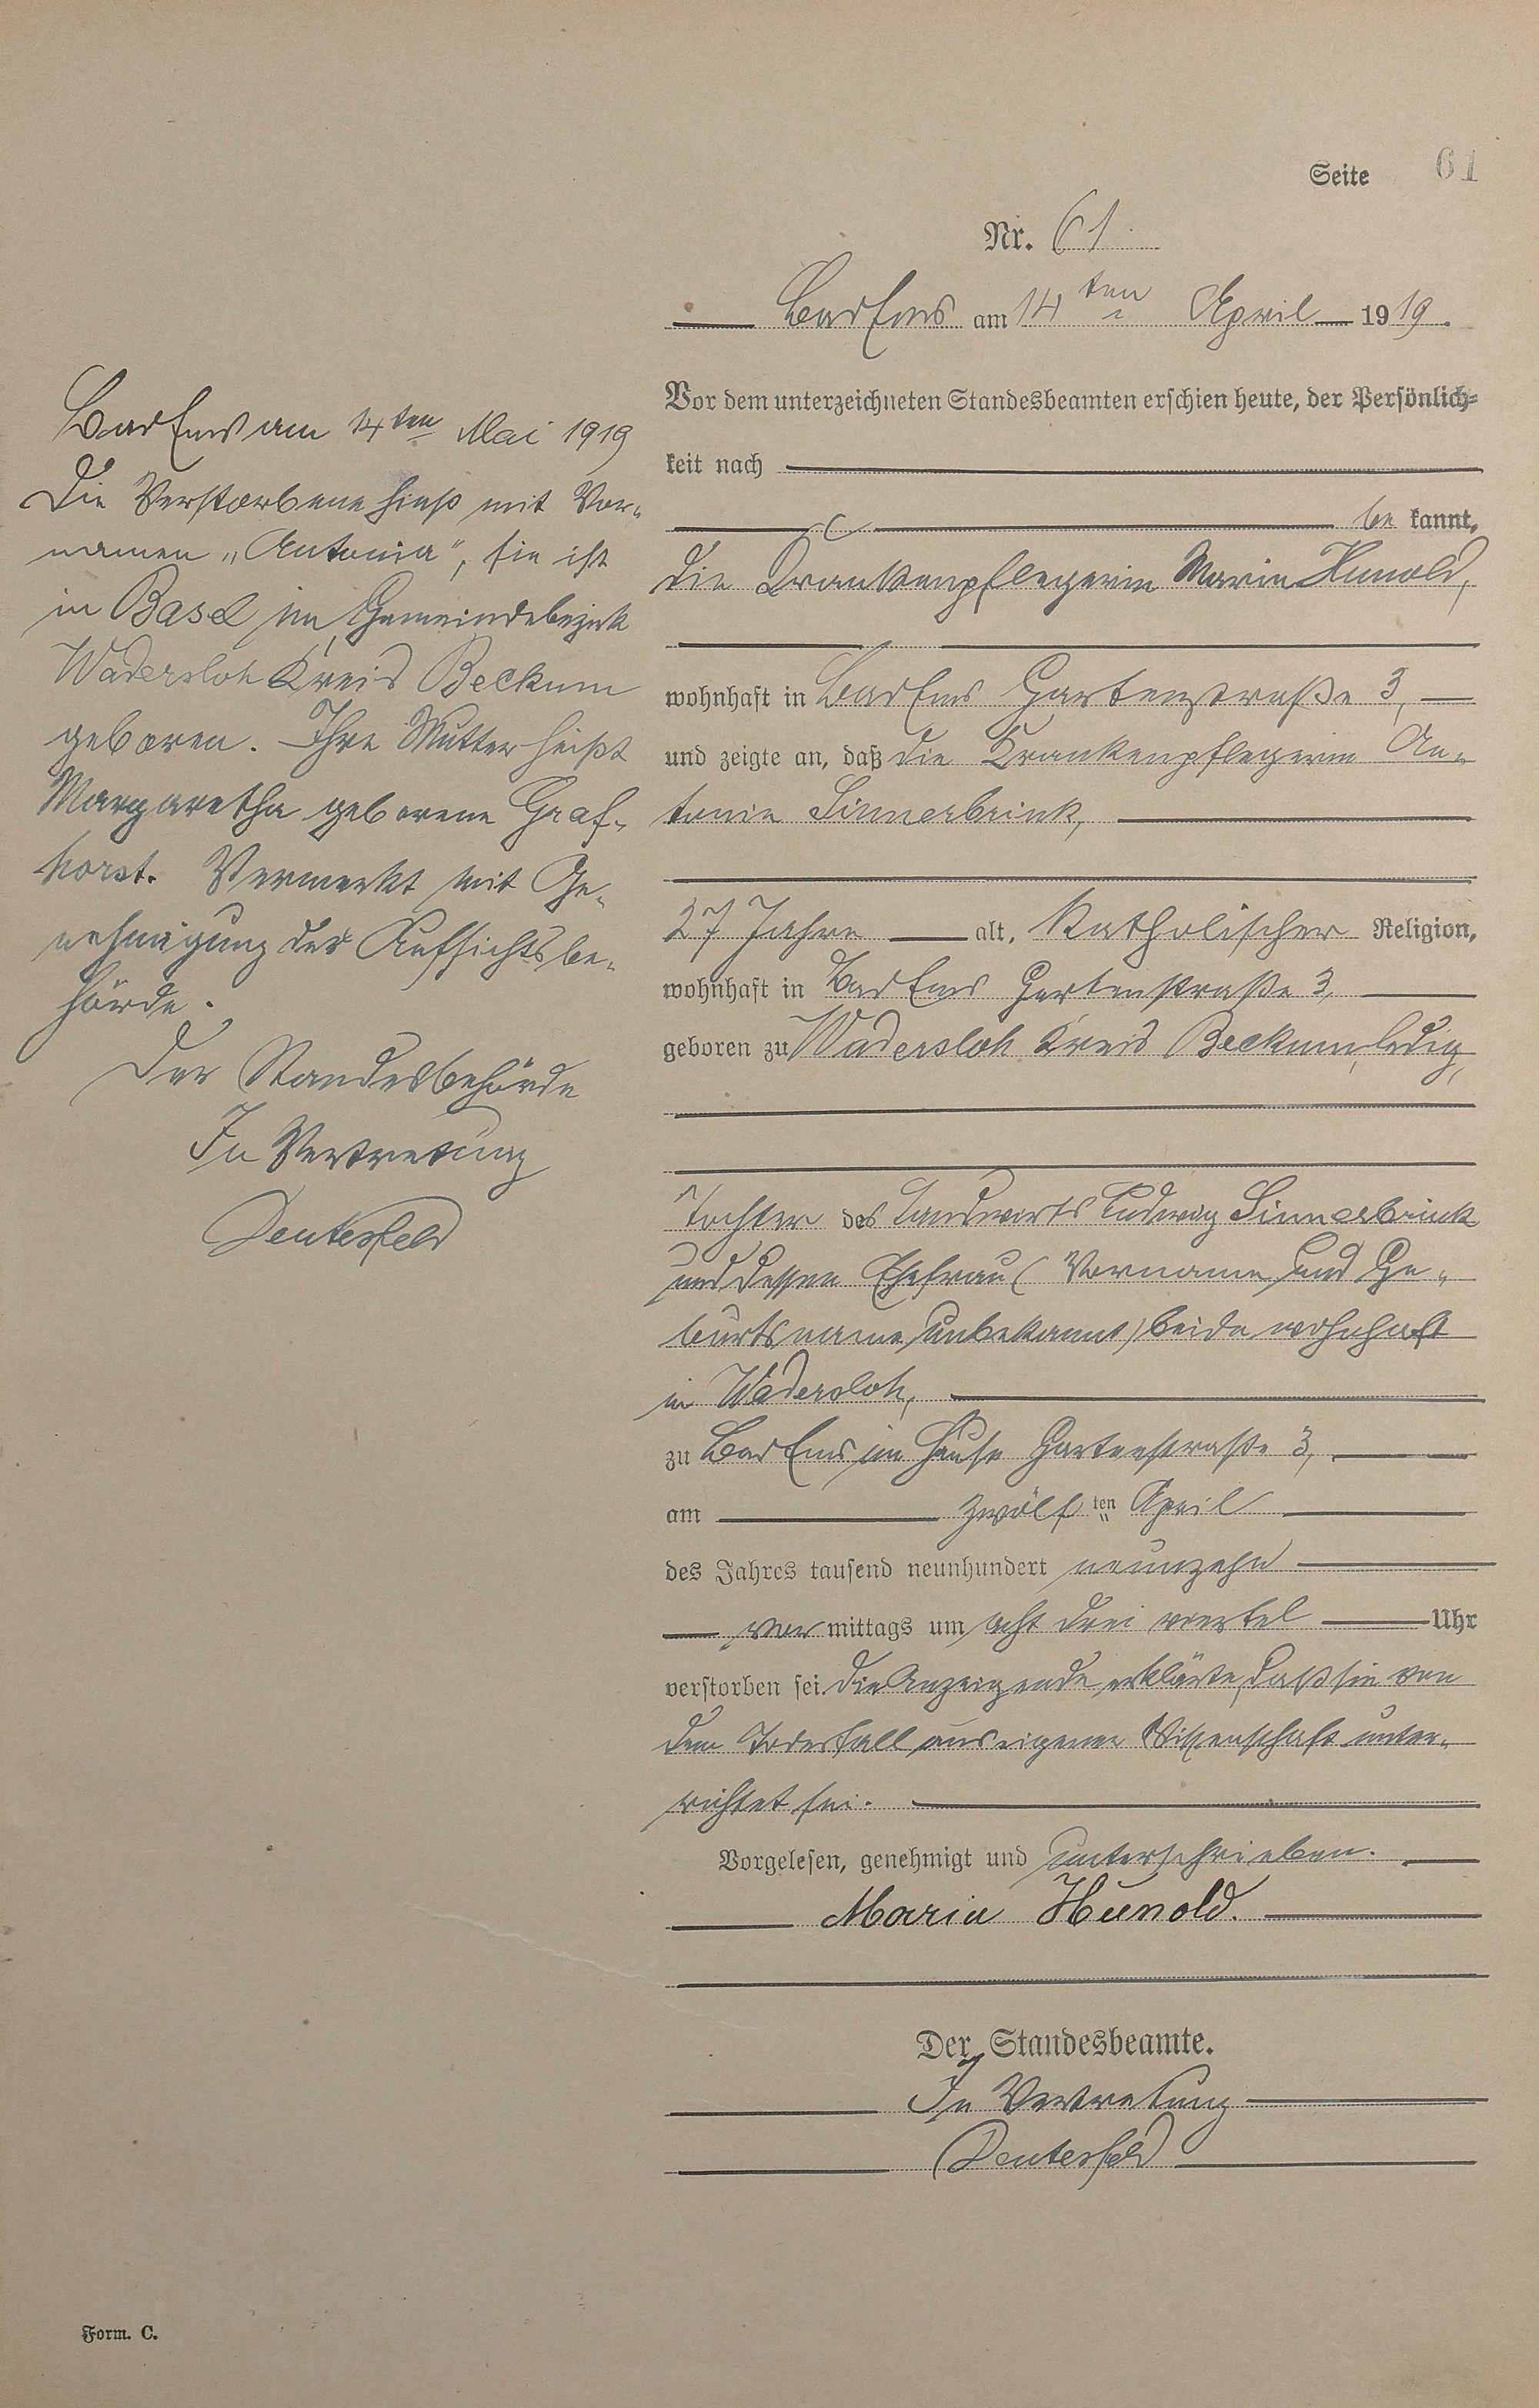 Seite 61
Nr. 61
Bad Ems am 14ten April 1919.
Vor dem unterzeichneten Standesbeamten erschien heute, der Persönlich=
keit nach
be kannt,
die Krankenpflegerin Maria Hunold,
wohnhaft in Bad Ems Gartenstraße 3,
und zeigte an, daß die Krankenpflegerin An-
tonie Sinnerbrink,
27 Jahre alt, katholischer Religion,
wohnhaft in Bad Ems Gartenstraße 3,
geboren zu Wadersloh Kreis Beckum, ledig,
Tochter des Landwirts Ludwig Sinnerbrink
und dessen Ehefrau (Vorname und Ge-
burtsname unbekannt) beide wohnhaft
in Wadersloh,
zu Bad Ems im Hause Gartenstraße 3,
am zwölften April
des Jahres tausend neunhundert neunzehn
vor mittags um acht drei viertel Uhr
verstorben sei. Die Anzeigende erklärte, daß sie von
dem Todesfall aus eigener Wissenschaft unter-
richtet sei.
Vorgelesen, genehmigt und unterschrieben.
Maria Hunold.
Der Standesbeamte.
In Vertretung
Deutesfeld
Bad Ems am 14ten Mai 1919
Die Verstorbene hieß mit Vor-
namen „Antonia", sie ist
in Basel im Gemeindebezirk
Wadersloh Kreis Beckum
geboren. Ihre Mutter heißt
Margaretha geborene Graf-
horst. Vermerkt mit Ge-
nehmigung der Aufsichtsbe-
hörde.
Der Standesbehörde
In Vertretung
Deutesfeld
Form. C.